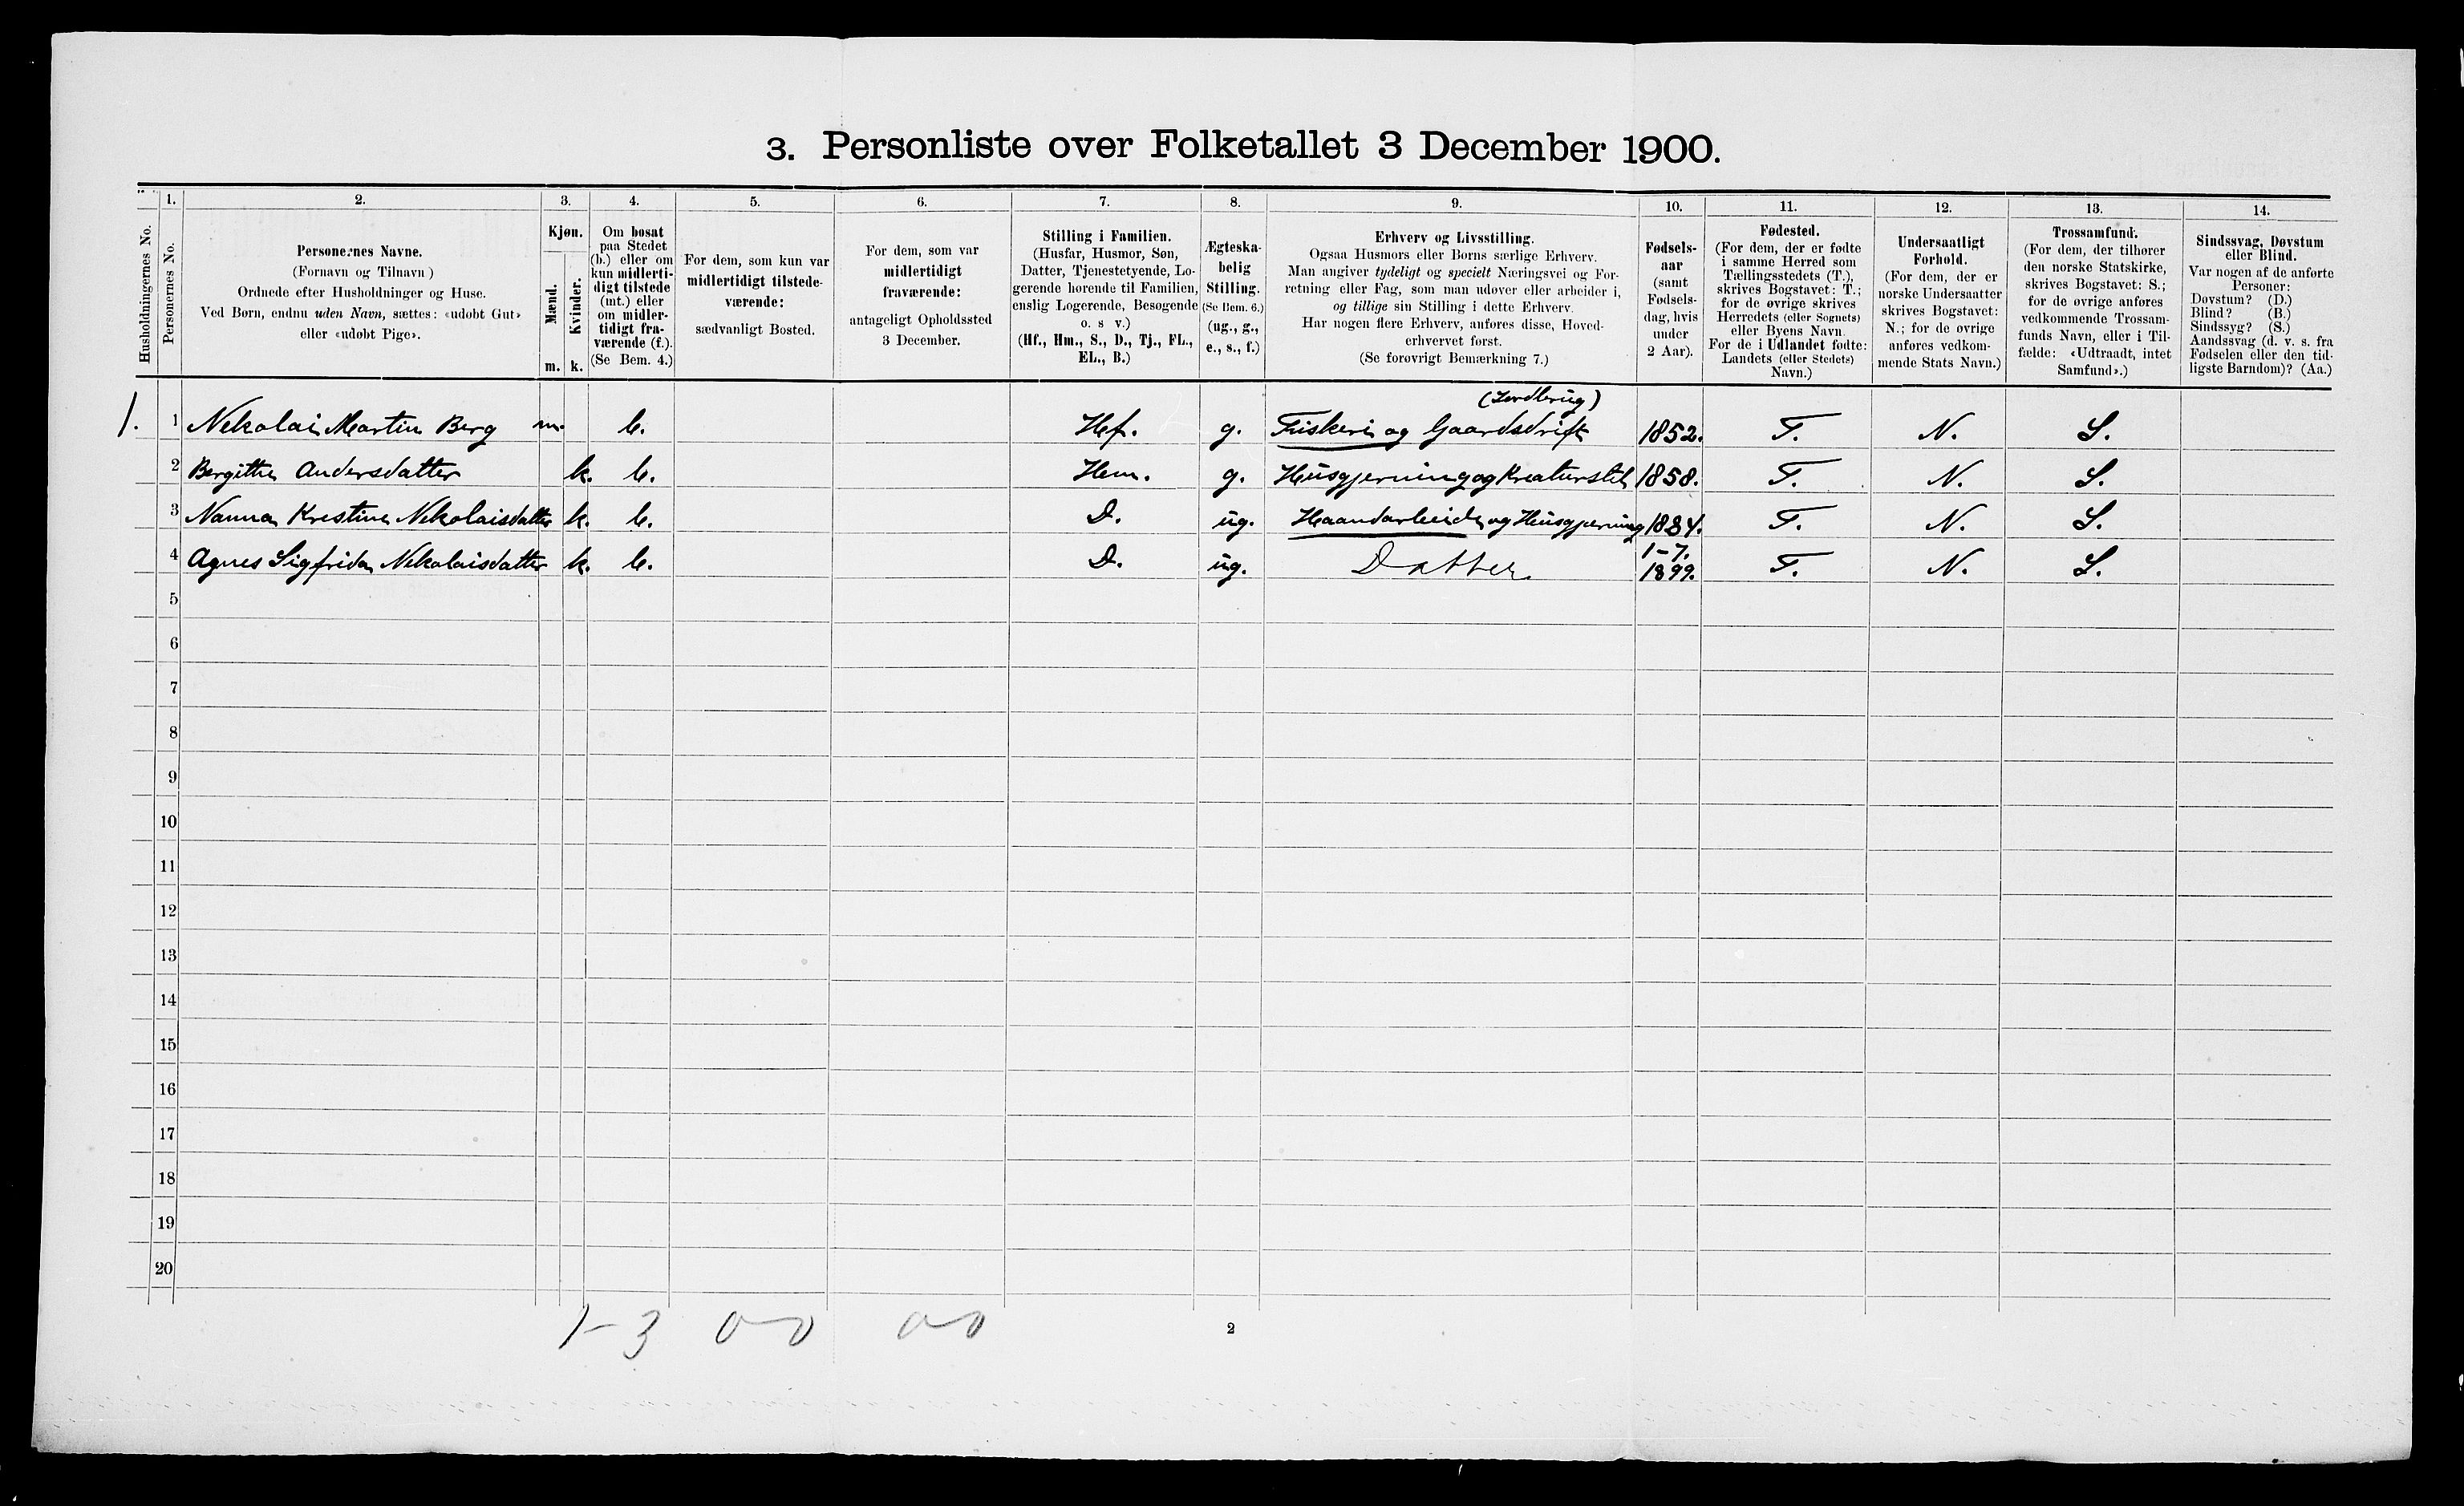 3. Personliste over Folketallet 3 December 1900.
1. 2. 3. 4. 5. 6. 7. 8. 9. 10. 11. 12. 13. 14.
Husholdningernes No.
Personernes No.
Personernes Navne.
(Fornavn og Tilnavn)
Ordnede efter Husholdninger og Huse.
Ved Børn, endnu uden Navn, sættes: «udøbt Gut»
eller «udøbt Pige».
Kjøn.
Mænd.
Kvinder.
m. k.
Om bosat
paa Stedet
(b.) eller om
kun midlerti-
digt tilstede
(mt.) eller
om midler-
tidigt fra-
værende (f.).
(Se Bem. 4.)
For dem, som kun var
midlertidigt tilstede-
værende:
sædvanligt Bosted.
For dem, som var
midlertidigt
fraværende:
antageligt Opholdssted
3 December.
Stilling i Familien.
(Husfar, Husmor, Søn,
Datter, Tjenestetyende, Lo-
gerende hørende til Familien,
enslig Logerende, Besøgende
o. s v.)
(Hf., Hm., S., D., Tj., FL.,
EL., B.)
Ægteska-
belig
Stilling.
(Se Bem. 6.)
(ug., g.,
e., s., f.)
Erhverv og Livsstilling.
Ogsaa Husmors eller Børns særlige Erhverv.
Man angiver tydeligt og specielt Næringsvei og For-
retning eller Fag, som man udøver eller arbeider i,
og tillige sin Stilling i dette Erhverv.
Har nogen flere Erhverv, anføres disse, Hoved-
erhvervet først.
(Se forøvrigt Bemærkning 7.)
Fødsels-
aar
(samt
Fødsels-
dag, hvis
under
2 Aar).
Fødested.
(For dem, der er fødte
i samme Herred som
Tællingsstedets (T.),
skrives Bogstavet: T.;
for de øvrige skrives
Herredets (eller Sognets)
eller Byens Navn.
For de i Udlandet fødte:
Landets (eller Stedets)
Navn.)
Undersaatligt
Forhold.
(For dem, der er
norske Undersaatter
skrives Bogstavet:
N.; for de øvrige
anføres vedkom-
mende Stats Navn.)
Trossamfund.
(For dem, der tilhører
den norske Statskirke,
skrives Bogstavet: S.;
for de øvrige anføres
vedkommende Trossam-
funds Navn, eller i Til-
fælde: «Udtraadt, intet
Samfund».)
Sindssvag, Døvstum
eller Blind.
Var nogen af de anførte
Personer:
Døvstum? (D.)
Blind? (B.)
Sindssyg? (S.)
Aandssvag (d. v. s. fra
Fødselen eller den tid-
ligste Barndom)? (Aa.)
(Jordbrug)
1. 1 Nekolai Martin Berg m. b. Hf. g. Fiskeri og Gaardsdrift 1852. T. N. S.
2 Bergitha Andersdatter k. b. Hm. g. Husgjerning og Kreaturstel 1858. T. N. S.
3 Nanna Krestine Nekolaisdatter k. b. D. ug. Haandarbeide og Husgjerning 1884. T. N. S.
4 Agnes Sigfrida Nekolaisdatter k. b. D. ug. Datter 1-7. 1899. T. N. S.
5
6
7
8
9
10
11
12
13
14
15
16
17
18
19
20
1-3 0-0 0-0
2